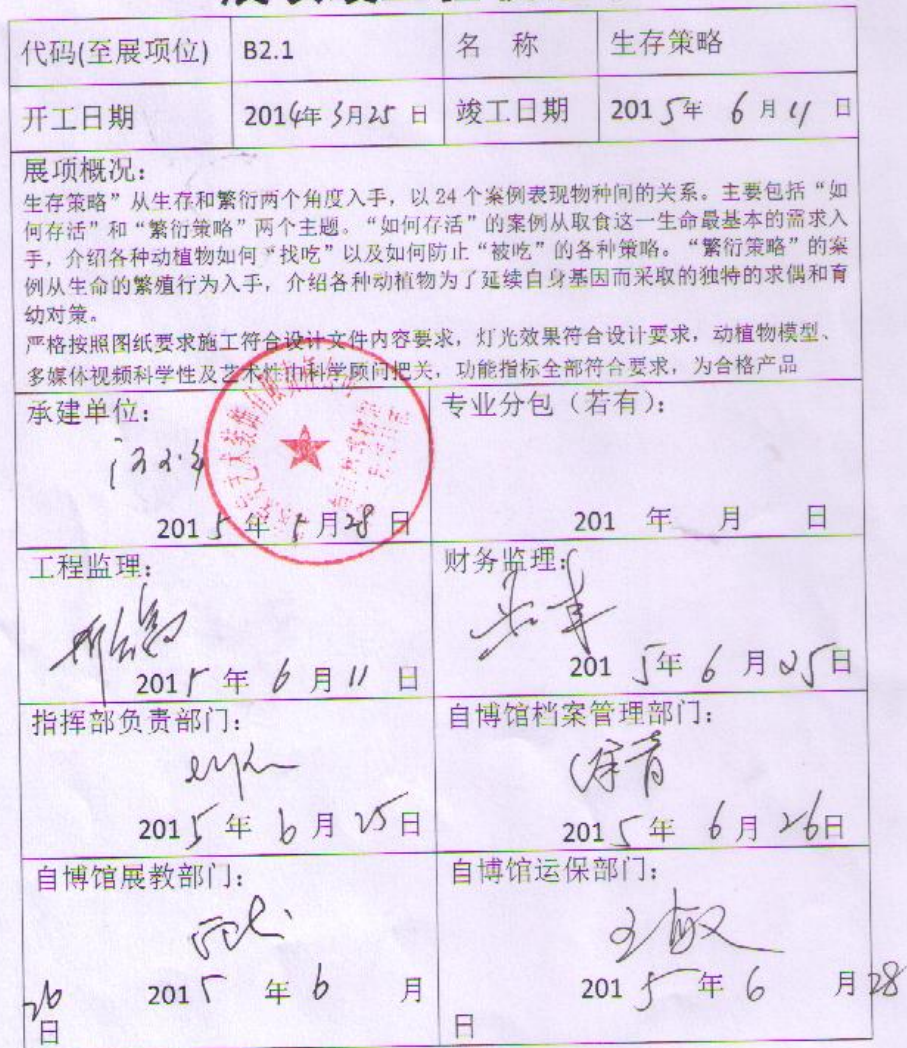 代码(至展项位) B2.1 名 称 生存策略
开工日期 2014年3月25日 竣工日期 2015年6月11日
展项概况：
生存策略”从生存和繁衍两个角度入手，以24个案例表现物种间的关系。主要包括“如
何存活”和“繁衍策略”两个主题。“如何存活”的案例从取食这一生命最基本的需求入
手，介绍各种动植物如何“找吃”以及如何防止“被吃”的各种策略。“繁衍策略”的案
例从生命的繁殖行为入手，介绍各种动植物为了延续自身基因而采取的独特的求偶和育
幼对策。
严格按照图纸要求施工符合设计文件内容要求，灯光效果符合设计要求，动植物模型、
多媒体视频科学性及艺术性由科学顾问把关，功能指标全部符合要求，为合格产品
承建单位： 专业分包（若有）：
2015年 月28日 201 年 月 日
工程监理： 财务监理：
2015年6月11日 2015年6月25日
指挥部负责部门： 自博馆档案管理部门：
徐青
2015年6月25日 2015年6月26日
自博馆展教部门： 自博馆运保部门：
王敏
2015年6月 2015年6月28
26日 日